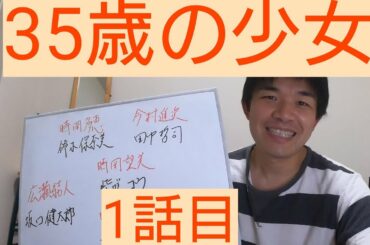 35歳の少女
時岡多恵 今村進次
鈴木保奈美 田中哲司
時岡望美
広瀬結人 柴咲コウ
坂口健太郎
1話目